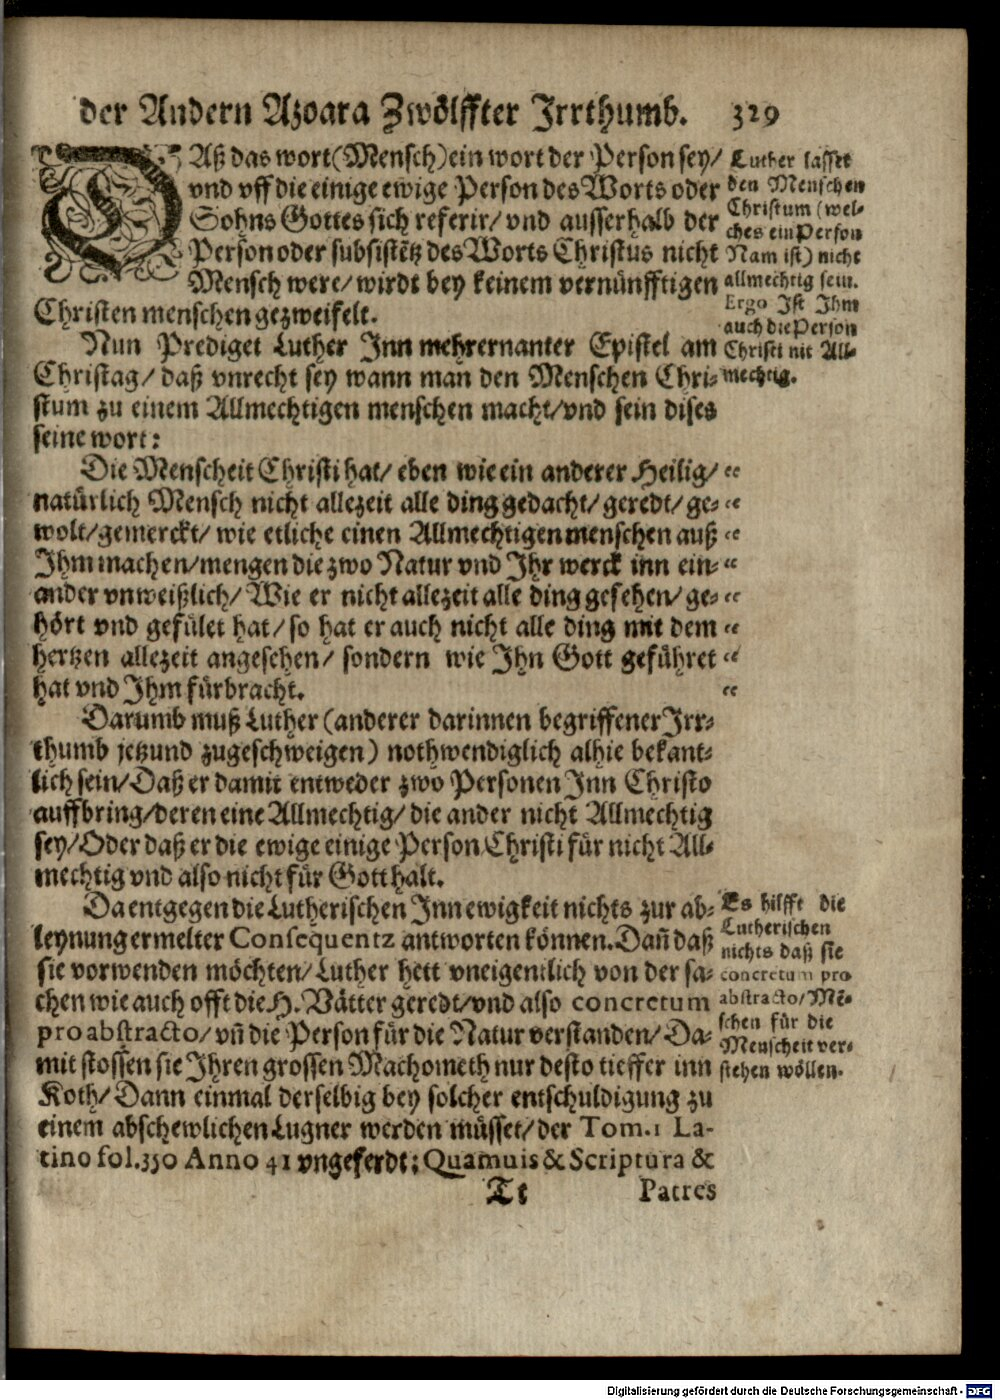 der Andern Azoara Zwölffter Irrthumb. 329
DAß das wort (Mensch) ein wort der Person sey/
vnd vff die einige ewige Person des Worts oder
Sohns Gottes sich referir/ vnd ausserhalb der
Person oder subsistẽtz des Worts Christus nicht
Mensch were/ wirdt bey keinem vernünfftigen
Christen menschen gezweifelt.
Luther lasset
den Menschen
Christum (wel-
ches ein Person
Nam ist) nicht
allmechtig sein.
Ergo Ist Ihm
auch die Person
Christi nit All-
mechtig.
Nun Prediget Luther Inn mehrernanter Epistel am
Christag/ daß vnrecht sey wann man den Menschen Chri-
stum zu einem Allmechtigen menschen macht/ vnd sein dises
seine wort:
Die Menscheit Christi hat/ eben wie ein anderer Heilig/ “
natürlich Mensch nicht allezeit alle ding gedacht/ geredt/ ge- “
wolt/ gemerckt/ wie etliche einen Allmechtigen menschen auß “
Ihm machen/ mengen die zwo Natur vnd Ihr werck inn ein- “
ander vnweißlich/ Wie er nicht allezeit alle ding gesehen/ ge- “
hört vnd gefület hat/ so hat er auch nicht alle ding mit dem “
hertzen allezeit angesehen/ sondern wie Ihn Gott geführet “
hat vnd Ihm fürbracht. “
Darumb muß Luther (anderer darinnen begriffener Irr-
thumb jetzund zugeschweigen) nothwendiglich alhie bekant-
lich sein/ Daß er damit entweder zwo Personen Inn Christo
auffbring/ deren eine Allmechtig/ die ander nicht Allmechtig
sey/ Oder daß er die ewige einige Person Christi für nicht All-
mechtig vnd also nicht für Gott halt.
Da entgegen die Lutherischen Inn ewigkeit nichts zur ab-
leynung ermelter Consequentz antworten können. Dañ daß
sie vorwenden möchten/ Luther hett vneigentlich von der sa-
chen wie auch offt die H. Vätter geredt/ vnd also concretum
pro abstracto/ vñ die Person für die Natur verstanden/ Da-
mit stossen sie Ihren grossen Machometh nur desto tieffer inn
Koth/ Dann einmal derselbig bey solcher entschuldigung zu
einem abschewlichen Lugner werden müsset/ der Tom. 1 La-
tino fol. 330 Anno 41 vngeferdt: Quamuis & Scriptura &
Es hilfft die
Lutherischen
nichts daß sie
concretum pro
abstracto/ Mẽ-
schen für die
Menscheit ver-
stehen wöllen.
Tt Patres
Digitalisierung gefördert durch die Deutsche Forschungsgemeinschaft - DFG